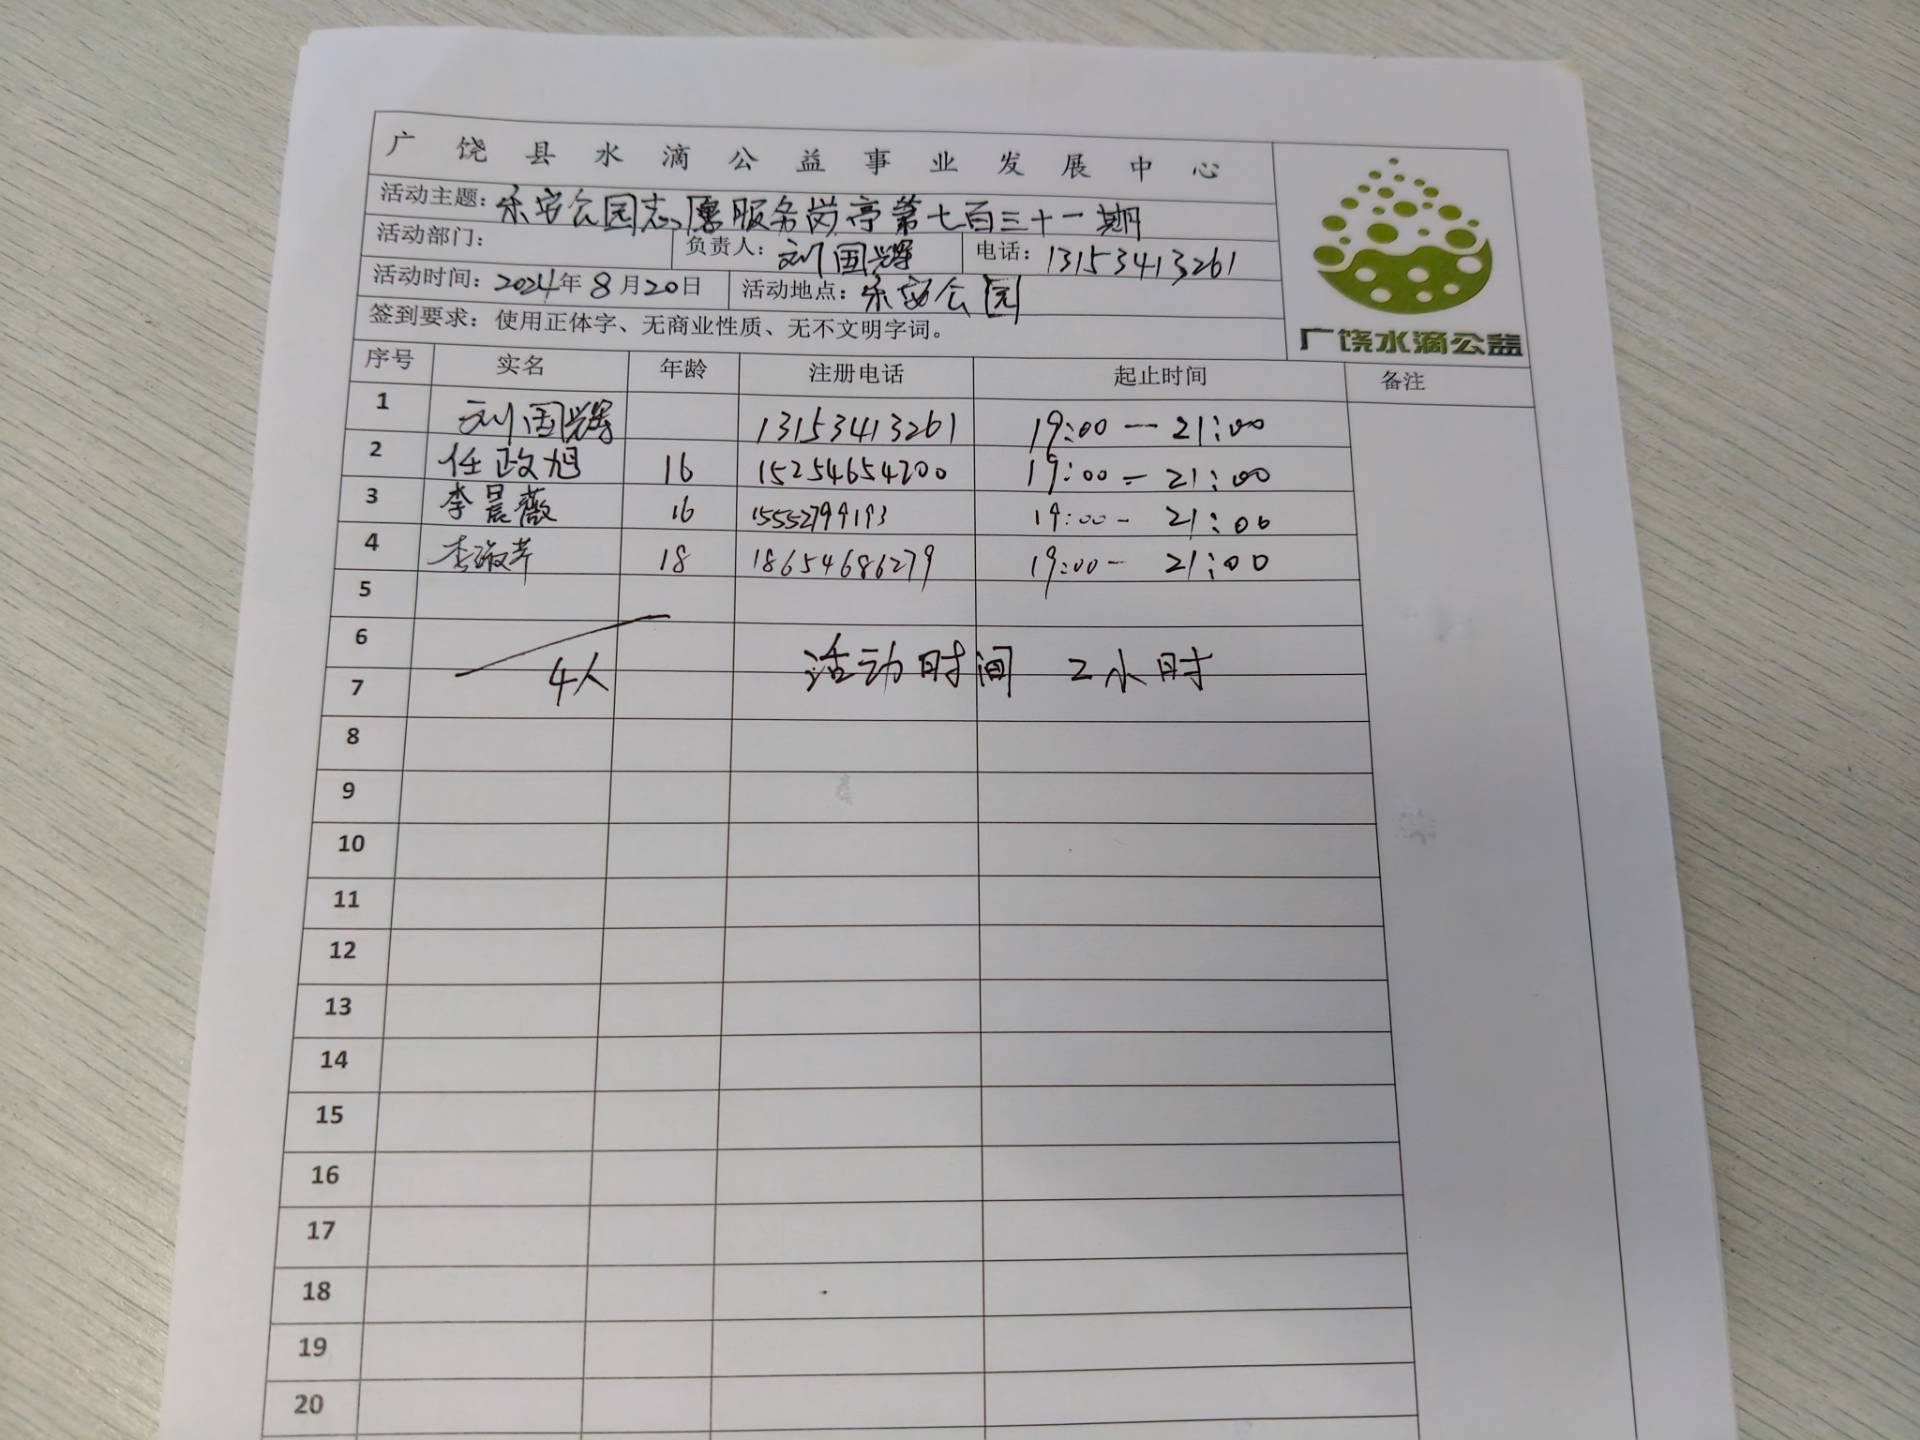 广饶县水滴公益事业发展中心
活动主题：乐安公园志愿服务岗亭第七百三十一期
活动部门： 负责人：刘国辉 电话：13153413261
活动时间：2024年8月20日 活动地点：乐安公园
签到要求：使用正体字、无商业性质、无不文明字词。
广饶水滴公益
序号 实名 年龄 注册电话 起止时间 备注
1 刘国辉 13153413261 19:00—21:00
2 任政旭 16 15254654700 19:00-21:00
3 李晨薇 16 15552799193 19:00-21:00
4 李淑芹 18 18654686279 19:00-21:00
5
6
4人 活动时间 2小时
7
8
9
10
11
12
13
14
15
16
17
18
19
20